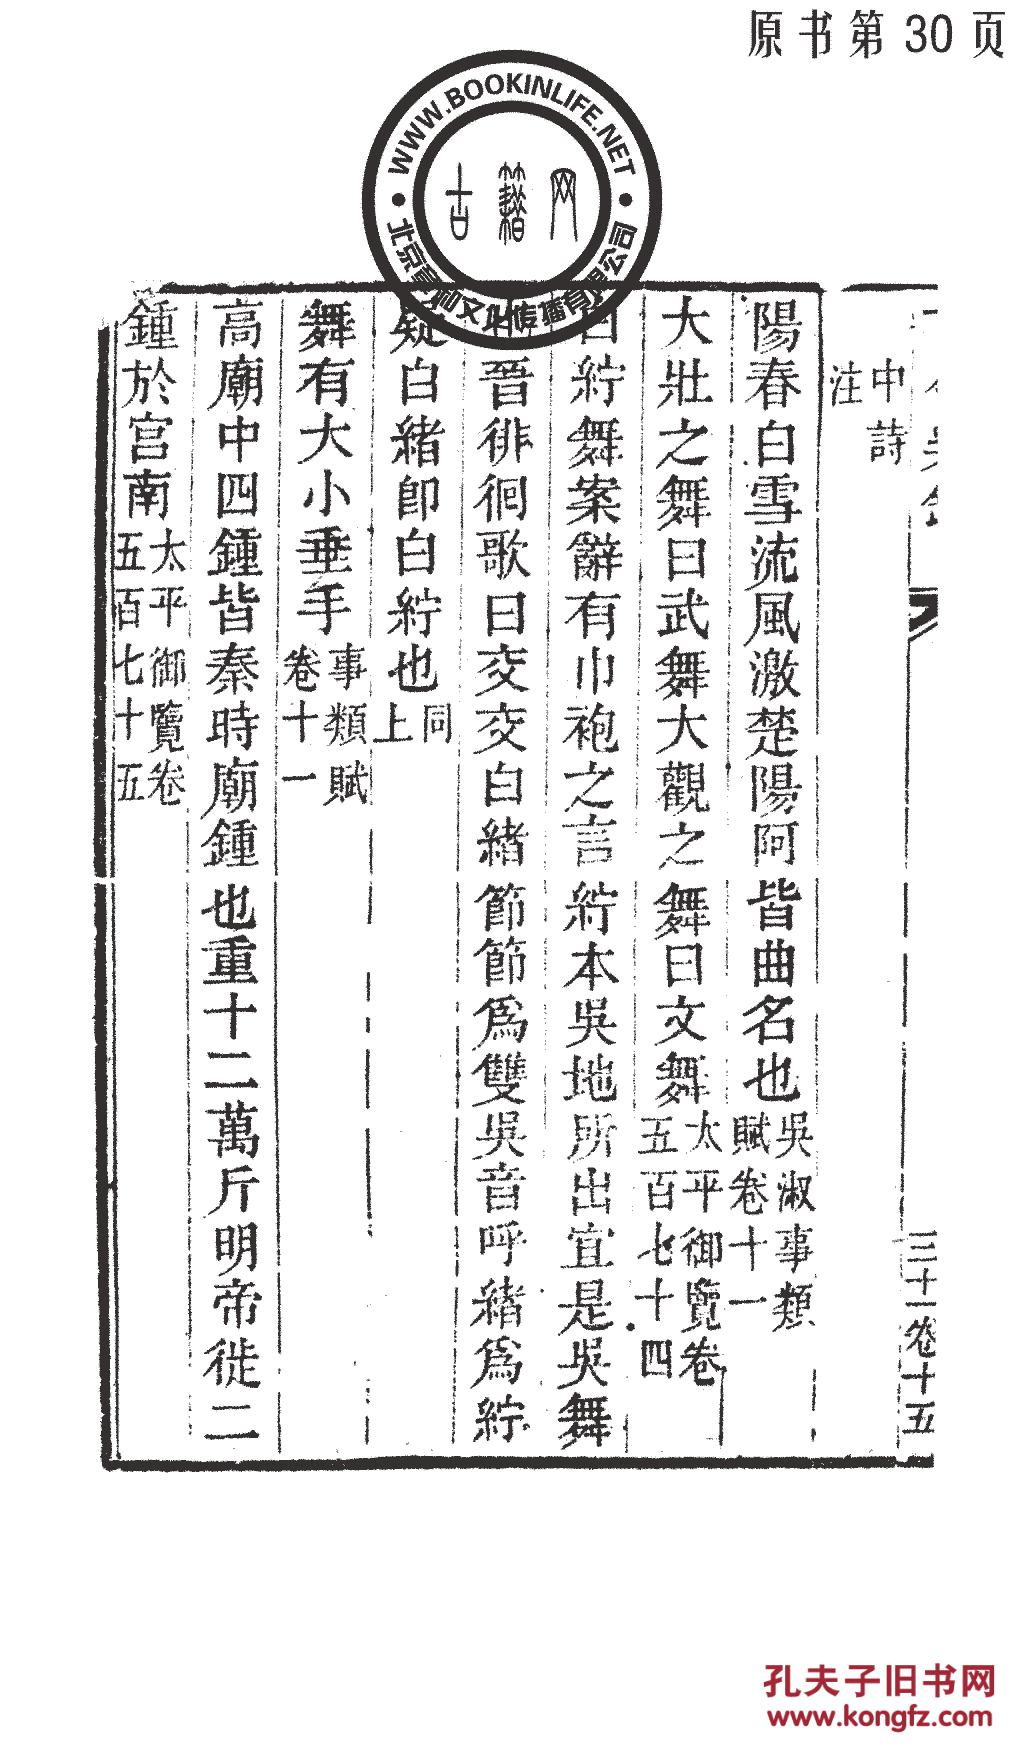 原书第30页
WWW.BOOKINLIFE.NET
古籍网
中詩
注
陽春白雪流風激楚陽阿皆曲名也吳淑事類
賦卷十一
大壯之舞曰武舞大觀之舞曰文舞太平御覽卷
五百七十四
白紵舞案辭有巾袍之言紵本吳地所出宜是吳舞
晉徘徊歌曰交交白緒節節爲雙吳音呼緒爲紵
疑白緒卽白紵也同
上
舞有大小垂手事類賦
卷十一
高廟中四鍾皆秦時廟鍾也重十二萬斤明帝徙二
鍾於宮南太平御覽卷
五百七十五
卷十五
孔夫子旧书网
www.kongfz.com